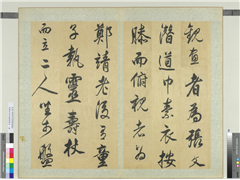 觀畫者為張文
潛道巾素衣按
膝而俯視者為
鄭靖老後有童
子執靈壽杖
而立二人坐於盤